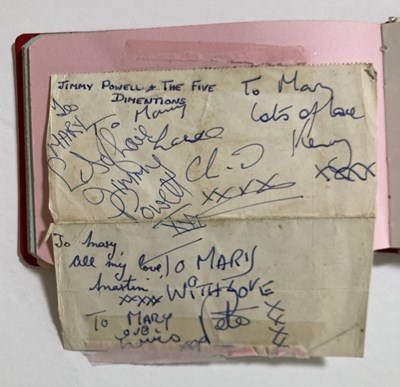 JIMMY POWELL & THE FIVE
DIMENTIONS
To Mary
Lots of love
Kenny
xxxxx
To
MARY
Love
JIMMY
POWELL
xx
To
Mary
Love
xxxx
To Mary
All my love
Martin
xxxx
TO MARY
WITH LOVE
Pete
xxx
TO MARY
love